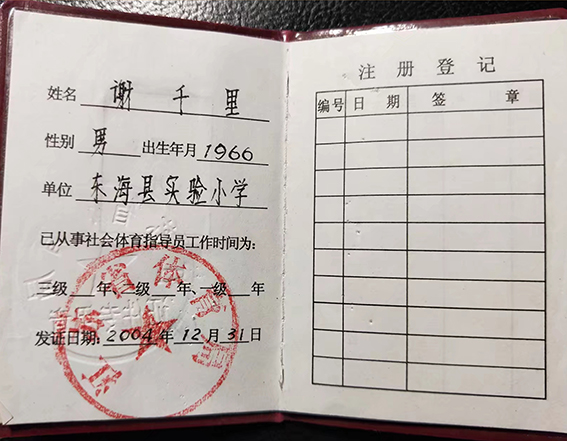 姓名 谢千里
性别 男 出生年月 1966
单位 东海县实验小学
已从事社会体育指导员工作时间为:
三级 年、二级 年、一级 年
发证日期: 2004 年 12 月 31 日
注册登记
编号 日期 签章